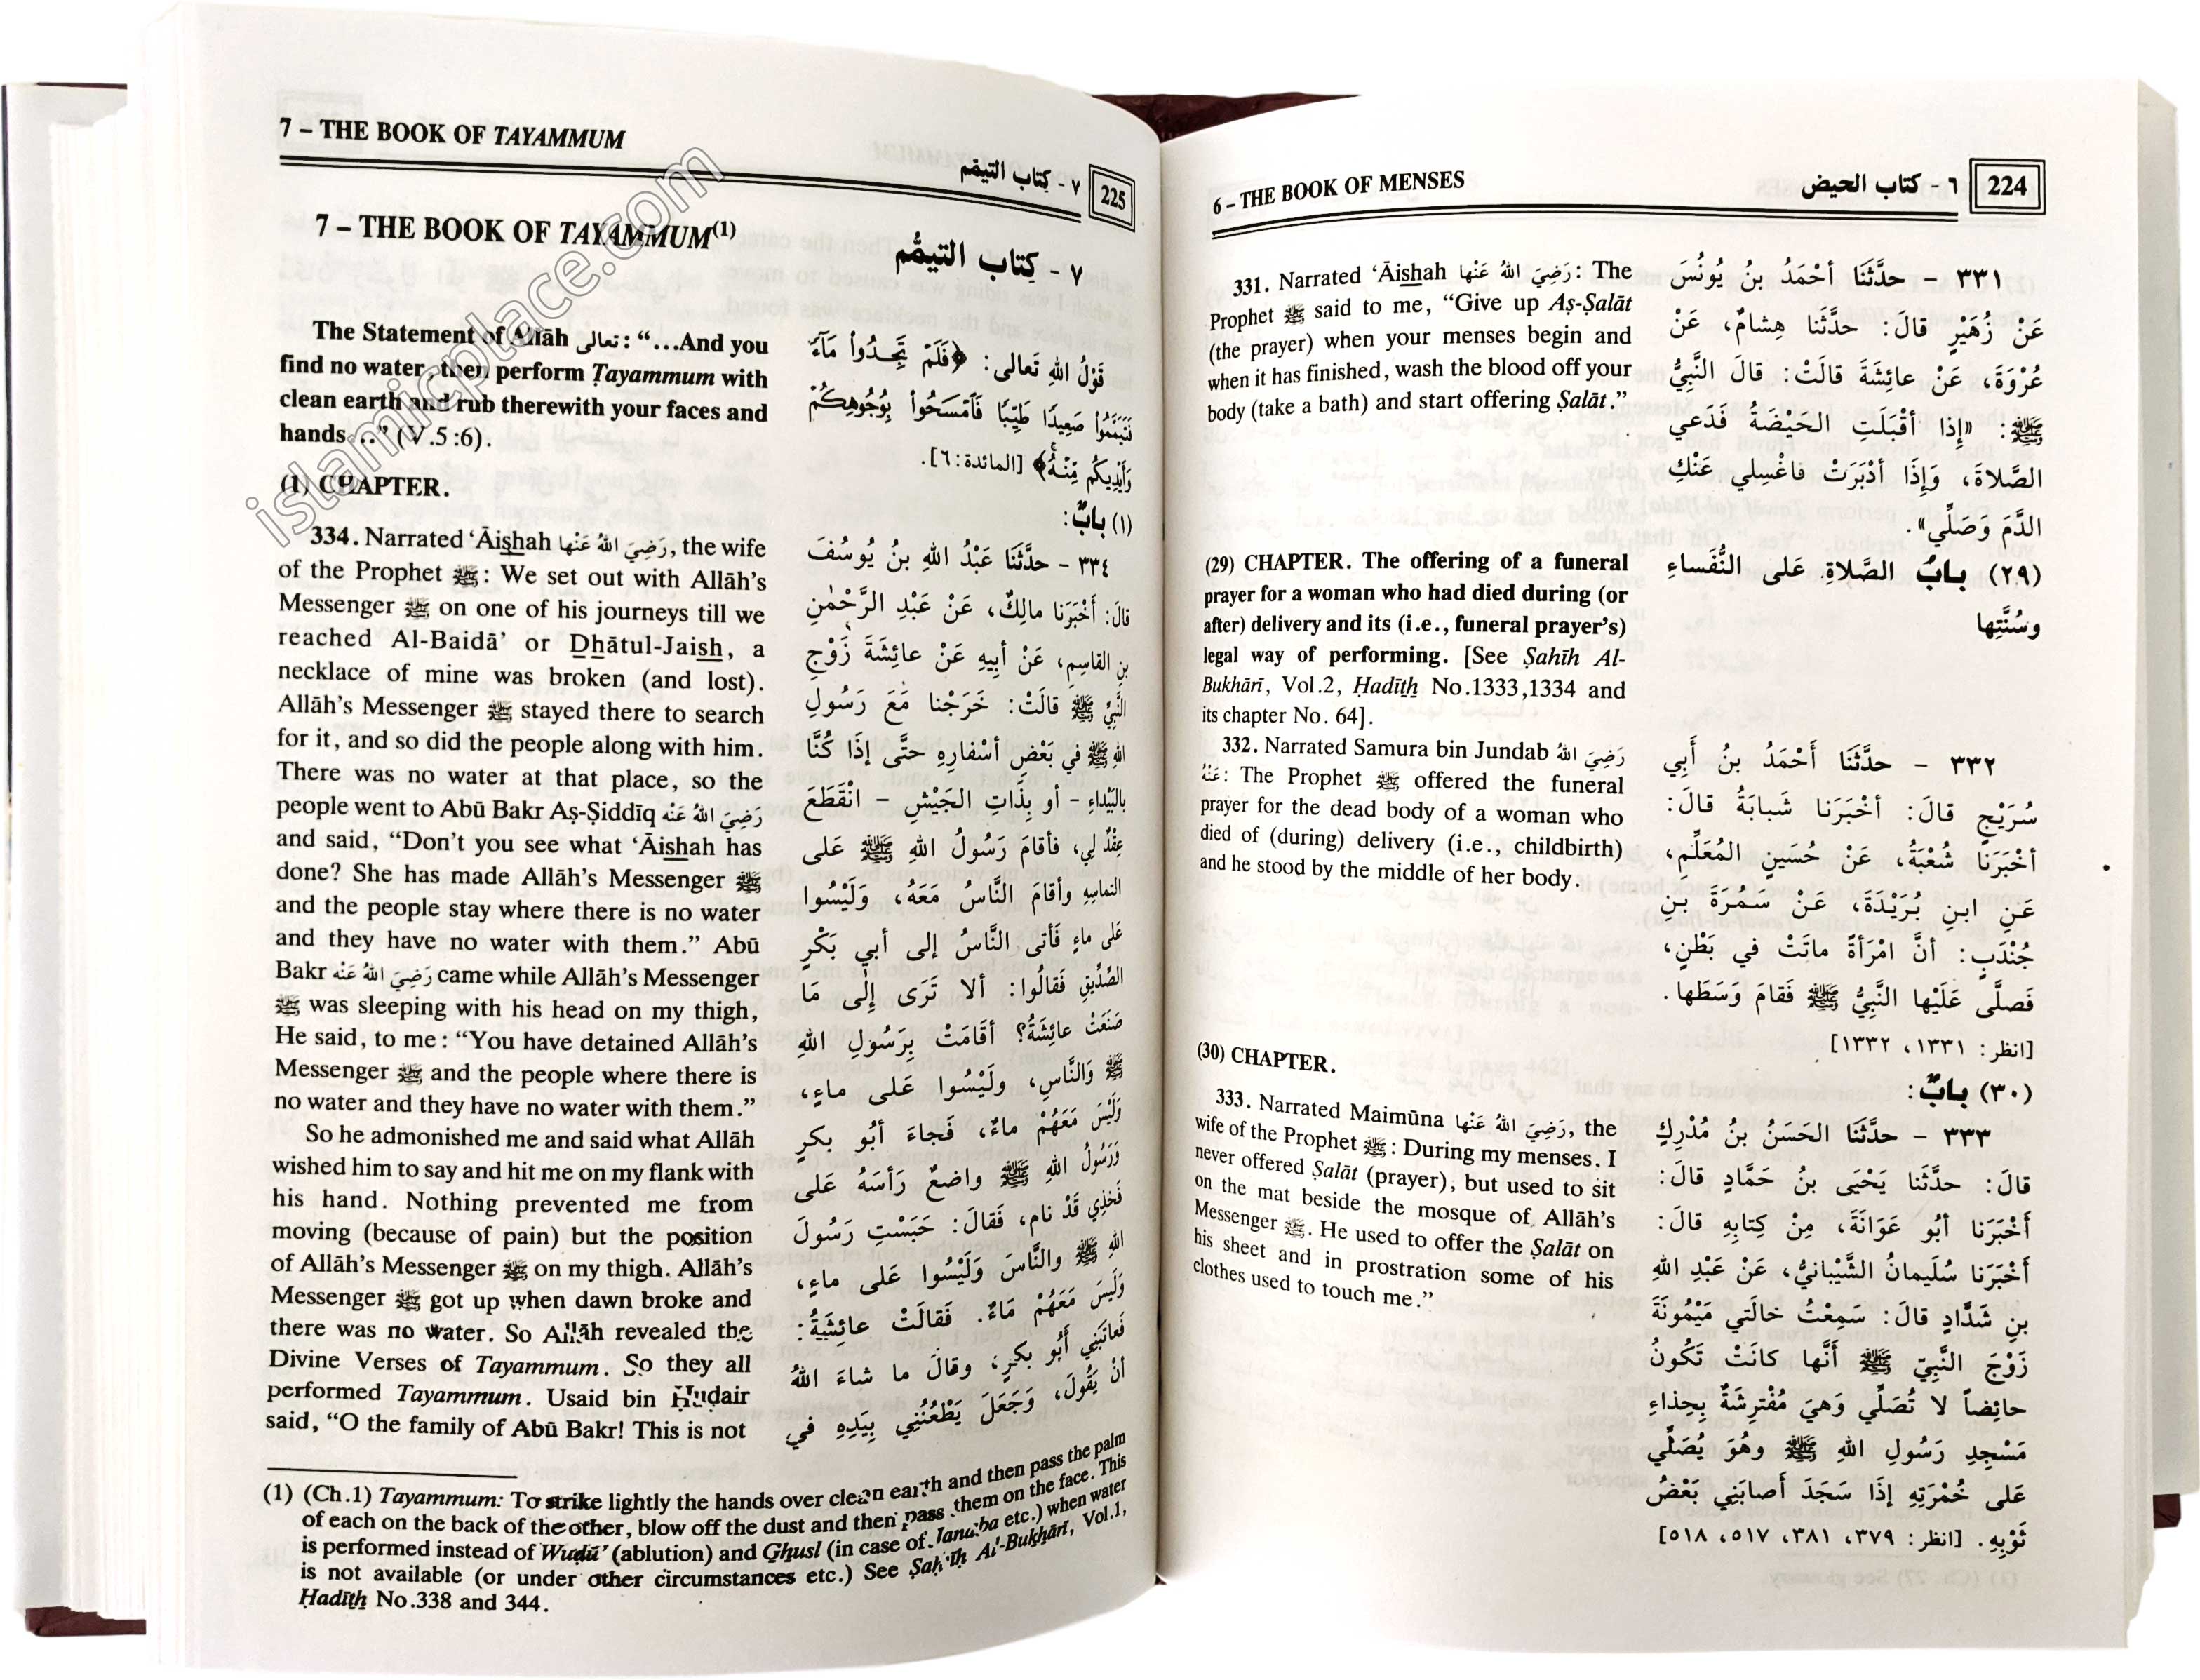 6 – THE BOOK OF MENSES
٦ - كتاب الحيض
224
331. Narrated ‘Āishah رَضِيَ اللهُ عَنْها: The
Prophet ﷺ said to me, “Give up Aṣ-Ṣalāt
(the prayer) when your menses begin and
when it has finished, wash the blood off your
body (take a bath) and start offering Ṣalāt.”
(29) CHAPTER. The offering of a funeral
prayer for a woman who had died during (or
after) delivery and its (i.e., funeral prayer’s)
legal way of performing. [See Ṣahīh Al-
Bukhārī, Vol.2, Ḥadīth No.1333,1334 and
its chapter No. 64].
332. Narrated Samura bin Jundab رَضِيَ اللهُ
عَنْهُ: The Prophet ﷺ offered the funeral
prayer for the dead body of a woman who
died of (during) delivery (i.e., childbirth)
and he stood by the middle of her body.
(30) CHAPTER.
333. Narrated Maimūna رَضِيَ اللهُ عَنْها, the
wife of the Prophet ﷺ: During my menses, I
never offered Ṣalāt (prayer), but used to sit
on the mat beside the mosque of Allāh’s
Messenger ﷺ. He used to offer the Ṣalāt on
his sheet and in prostration some of his
clothes used to touch me.”
٣٣١ - حدَّثَنَا أحْمَدُ بنُ يُونُسَ
عَنْ زُهَيْرٍ قالَ: حدَّثَنا هِشامٌ، عَنْ
عُرْوَةَ، عَنْ عائِشَةَ قالَتْ: قالَ النَّبِيُّ
ﷺ: «إِذا أقْبَلَتِ الحَيْضَةُ فَدَعي
الصَّلاةَ، وَإِذَا أدْبَرَتْ فاغْسِلي عَنْكِ
الدَّمَ وَصَلِّي».
(٢٩) بابُ الصَّلاةِ عَلى النُّفَساءِ
وسُنَّتِها
٣٣٢ - حدَّثَنَا أَحْمَدُ بنُ أَبِي
سُرَيْجٍ قالَ: أخْبَرَنا شَبابَةُ قالَ:
أخْبَرَنَا شُعْبَةُ، عَنْ حُسَينٍ المُعَلِّمِ،
عَنِ ابنِ بُرَيْدَةَ، عَنْ سَمُرَةَ بَنِ
جُنْدَبٍ: أنَّ امْرَأةً ماتَتْ في بَطْنٍ،
فَصلَّى عَلَيْها النَّبِيُّ ﷺ فَقامَ وَسَطَها.
[انظر: ١٣٣١، ١٣٣٢]
(٣٠) بابٌ:
٣٣٣ - حدَّثَنَا الحَسَنُ بنُ مُدْرِكٍ
قالَ: حدَّثَنا يَحْيَى بنُ حَمَّادٍ قالَ:
أَخْبَرَنا أبُو عَوَانَةَ، مِنْ كِتابِهِ قالَ:
أَخْبَرَنا سُلَيمانُ الشَّيْبانيُّ، عَنْ عَبْدِ اللهِ
بنِ شَدَّادٍ قالَ: سَمِعْتُ خالَتي مَيْمُونَةَ
زَوْجَ النَّبِيِّ ﷺ أَنَّها كانَتْ تَكُونُ
حائِضاً لا تُصَلِّي وَهيَ مُفْتَرِشَةٌ بِحِذاءِ
مَسْجِدِ رَسُولِ اللهِ ﷺ وهُوَ يُصَلِّي
عَلى خُمْرَتِهِ إذَا سَجَدَ أَصابَنِي بَعْضُ
ثَوْبِهِ. [انظر: ٣٧٩، ٣٨١، ٥١٧، ٥١٨]
7 – THE BOOK OF TAYAMMUM
٧ - كِتاب التيمّم
225
7 – THE BOOK OF TAYAMMUM(1)
٧ - كِتاب التيمُّم
The Statement of Allāh تعالى: “...And you
find no water, then perform Ṭayammum with
clean earth and rub therewith your faces and
hands...” (V.5:6).
(1) CHAPTER.
334. Narrated ‘Āishah رَضِيَ اللهُ عَنْها, the wife
of the Prophet ﷺ: We set out with Allāh’s
Messenger ﷺ on one of his journeys till we
reached Al-Baidā’ or Dhātul-Jaish, a
necklace of mine was broken (and lost).
Allāh’s Messenger ﷺ stayed there to search
for it, and so did the people along with him.
There was no water at that place, so the
people went to Abū Bakr Aṣ-Ṣiddīq رَضِيَ اللهُ عَنْه
and said, “Don’t you see what ‘Āishah has
done? She has made Allāh’s Messenger ﷺ
and the people stay where there is no water
and they have no water with them.” Abū
Bakr رَضِيَ اللهُ عَنْه came while Allāh’s Messenger
ﷺ was sleeping with his head on my thigh,
He said, to me: “You have detained Allāh’s
Messenger ﷺ and the people where there is
no water and they have no water with them.”
So he admonished me and said what Allāh
wished him to say and hit me on my flank with
his hand. Nothing prevented me from
moving (because of pain) but the position
of Allāh’s Messenger ﷺ on my thigh. Allāh’s
Messenger ﷺ got up when dawn broke and
there was no water. So Allāh revealed the
Divine Verses of Tayammum. So they all
performed Tayammum. Usaid bin Ḥuḍair
said, “O the family of Abū Bakr! This is not
قَوْلُ اللهِ تَعالى: ﴿فَلَمْ تَجِدُوا مَآءً
فَتَيَمَّمُوا صَعِيدًا طَيِّبًا فَامْسَحُوا بِوُجُوهِكُمْ
وَأَيْدِيكُم مِّنْهُ﴾ [المائدة: ٦].
(١) بابٌ:
٣٣٤ - حدَّثَنَا عَبْدُ اللهِ بنُ يُوسُفَ
قالَ: أَخْبَرَنا مالِكٌ، عَنْ عَبْدِ الرَّحْمٰنِ
بنِ القاسِمِ، عَنْ أبِيهِ عَنْ عائِشَةَ زَوْجِ
النَّبِيِّ ﷺ قالَتْ: خَرَجْنا مَعَ رَسُولِ
اللهِ ﷺ في بَعْضِ أسْفارِهِ حتَّى إِذَا كُنَّا
بالبَيْداءِ - أو بِذَاتِ الجَيْشِ - انْقَطَعَ
عِقْدٌ لِي، فأقامَ رَسُولُ اللهِ ﷺ عَلى
التماسِهِ وأقامَ النَّاسُ مَعَهُ، وَلَيْسُوا
عَلى ماءٍ فَأتى النَّاسُ إلى أبي بَكْرٍ
الصِّدِّيقِ فَقالُوا: ألا تَرَى إِلى مَا
صَنَعَتْ عائِشَةُ؟ أقَامَتْ بِرَسُولِ اللهِ
ﷺ وَالنَّاسِ، ولَيْسُوا عَلى ماءٍ،
وَلَيْسَ مَعَهُمْ ماءٌ، فَجاءَ أبُو بكرٍ
وَرَسُولُ اللهِ ﷺ واضعٌ رَأسَهُ عَلى
فَخِذِي قَدْ نام، فَقالَ: حَبَسْتِ رَسُولَ
اللهِ ﷺ والنَّاسَ وَلَيْسُوا عَلى ماءٍ،
وَلَيسَ مَعَهُمْ مَاءٌ. فَقالَتْ عائِشَةُ:
فَعاتَبَنِي أَبُو بكرٍ، وقالَ ما شاءَ اللهُ
أنْ يَقُولَ، وَجَعَلَ يَطْعُنُنِي بِيَدِهِ في
(1) (Ch.1) Tayammum: To strike lightly the hands over clean earth and then pass the palm
of each on the back of the other, blow off the dust and then pass them on the face. This
is performed instead of Wuḍū’ (ablution) and Ghusl (in case of Janāba etc.) when water
is not available (or under other circumstances etc.) See Ṣaḥīḥ Al-Bukhārī, Vol.1,
Ḥadīth No.338 and 344.
islamicplace.com